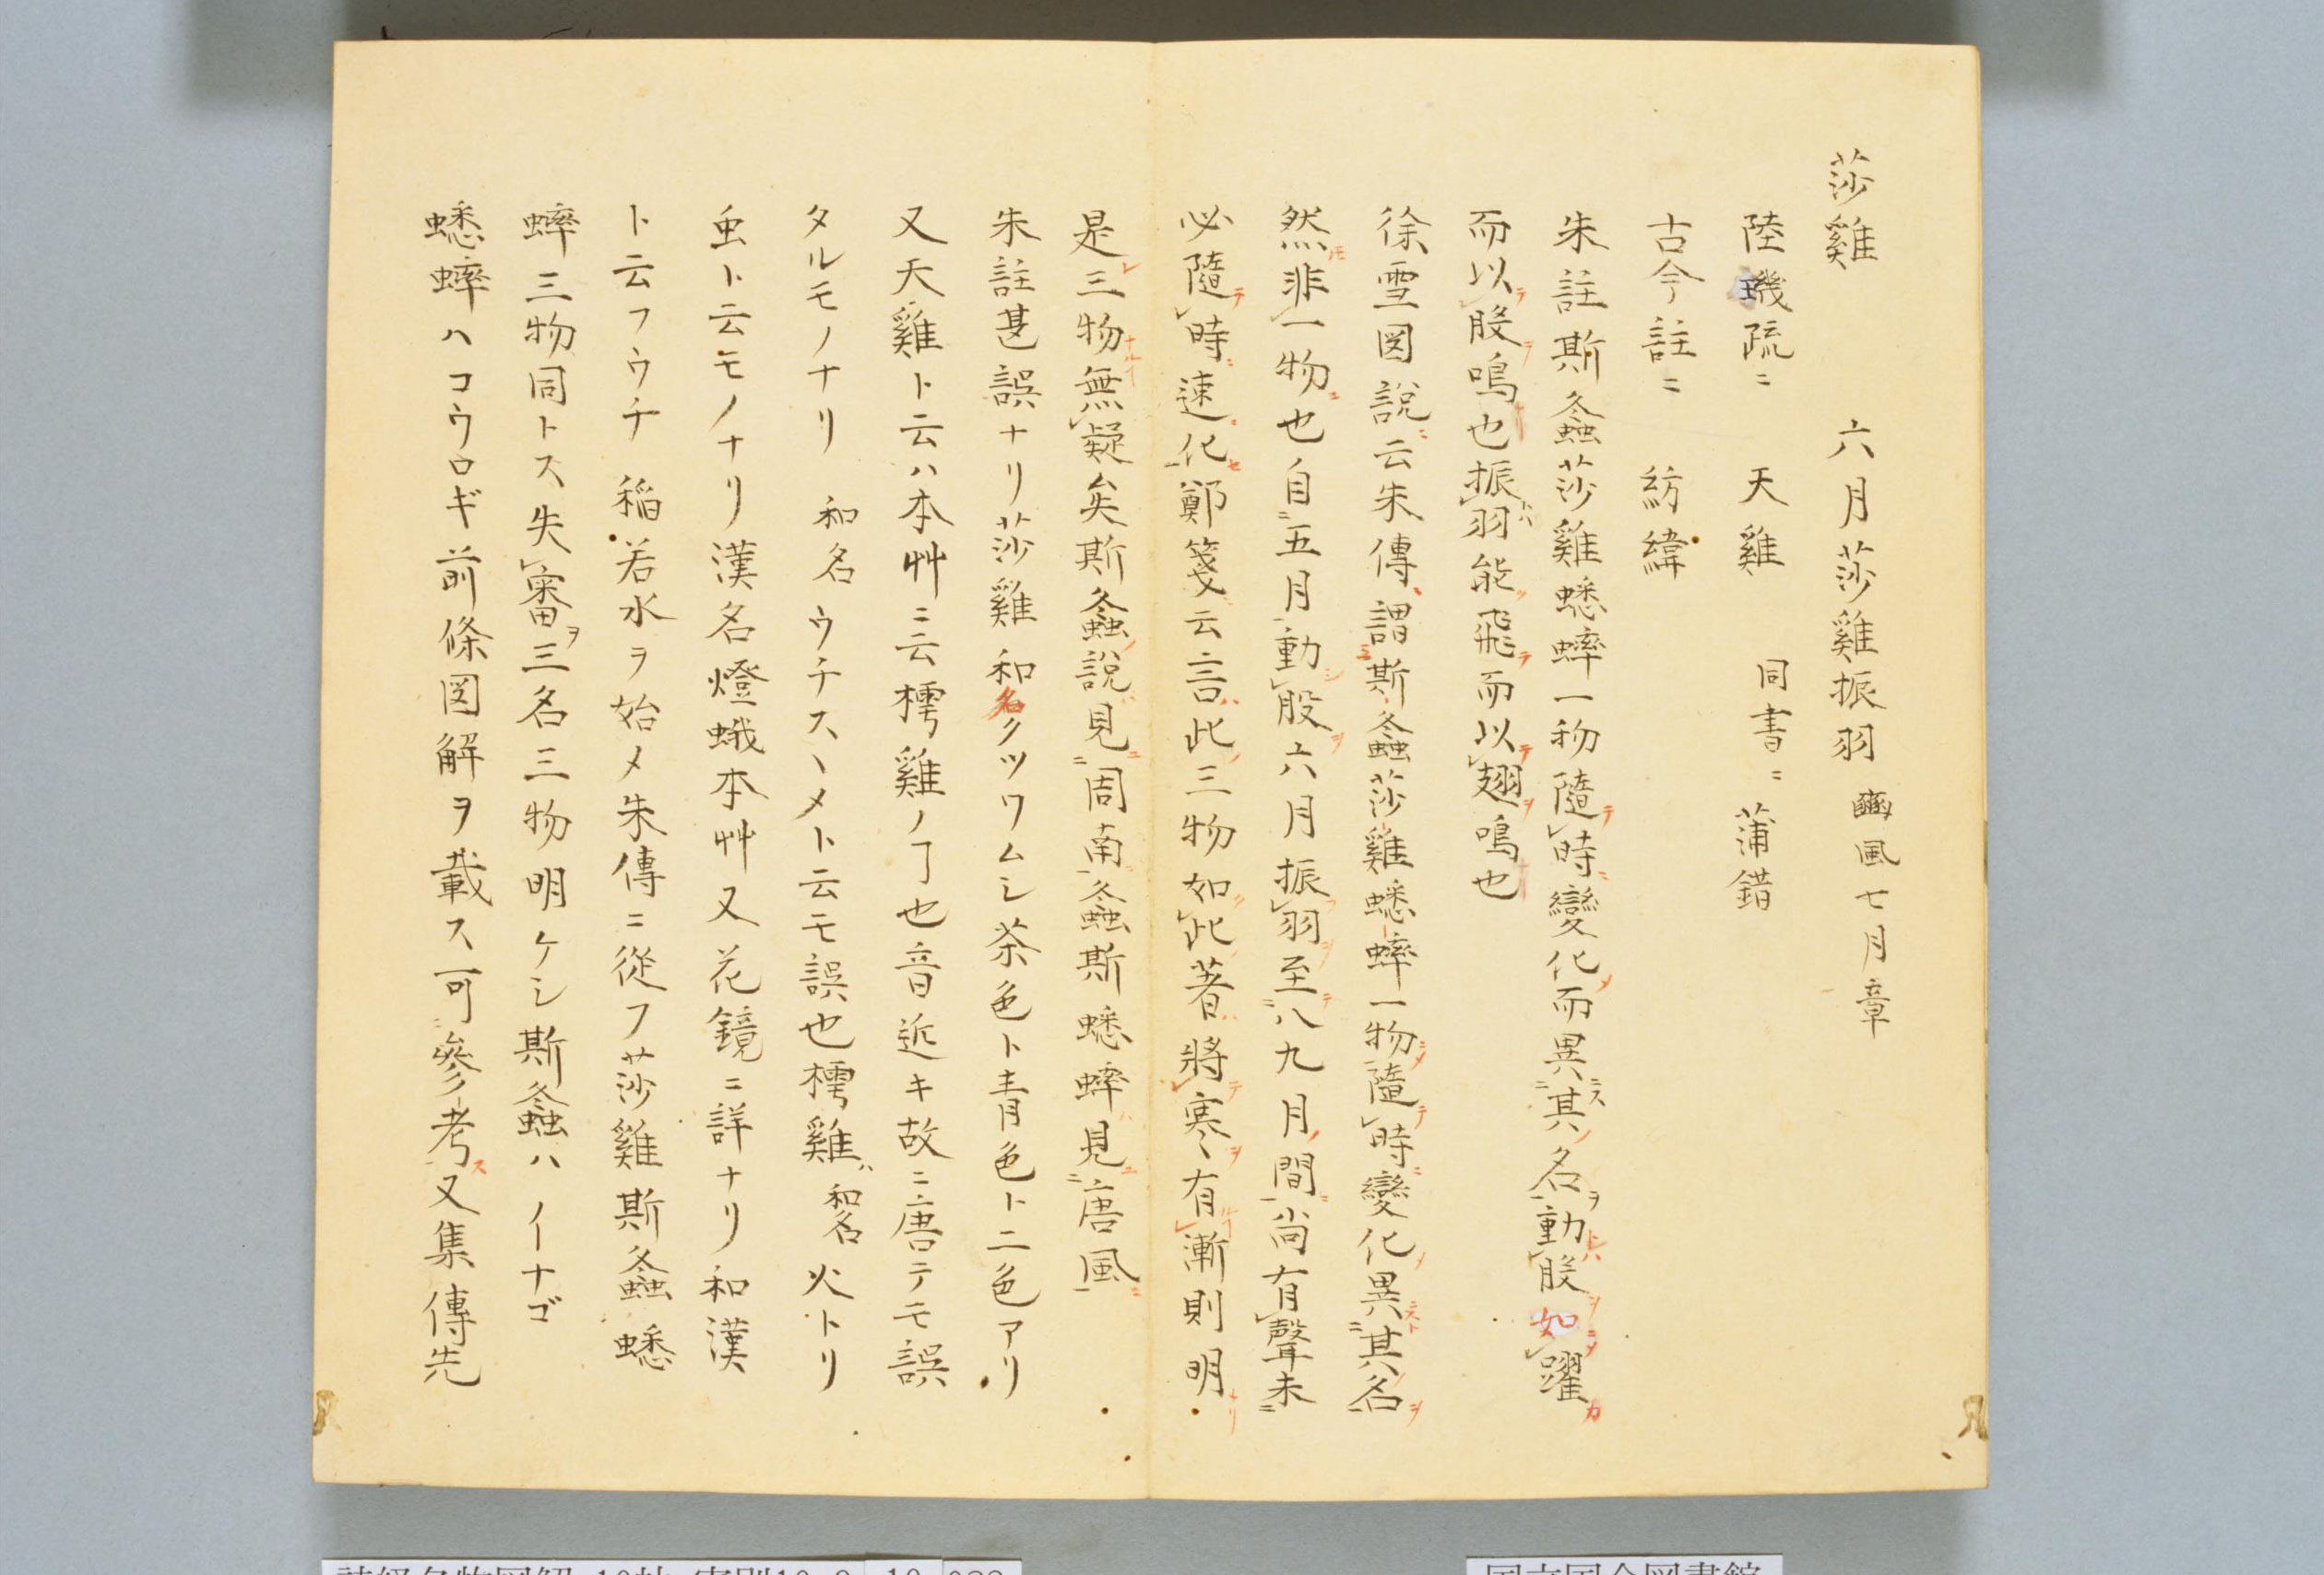 莎雞　　六月莎雞振羽　豳風七月章
陸璣疏ニ　天雞　同書ニ　蒲錯
古今註ニ　紡緯
朱註斯螽莎雞蟋蟀一物隨時變化而異其名動股如躍
而以股鳴也振羽能飛而以翅鳴也
徐雪図説云朱傳謂斯螽莎雞蟋蟀一物隨時變化異其名
然非一物也自五月動股六月振羽至八九月間尚有聲未
必隨時速化鄭箋云言此三物如此著將寒〻有漸則明
是三物無疑矣斯螽説見周南螽斯蟋蟀見唐風
朱註甚誤ナリ莎雞和名クツワムシ茶色ト青色ト二色アリ
又天雞ト云ハ本艸ニ云樗雞ノ𪜈也音近キ故ニ唐テモ誤
タルモノナリ　和名ウチスヽメト云モ誤也樗雞ハ和名火トリ
虫ト云モノナリ漢名燈蛾本艸又花鏡ニ詳ナリ和漢
ト云フウチ稲若水ヲ始メ朱傳ニ從フ莎雞斯螽蟋
蟀三物同トス失審ヲ三名三物明ケシ斯螽ハイーナゴ
蟋蟀ハコウロギ前條図解ヲ載ス可參考ス又集傳先
詩経名物図解
国立国会図書館